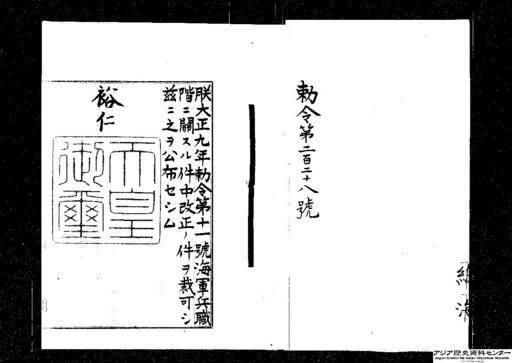 勅令第二百二十八號
朕大正九年勅令第十一號海軍兵職
階ニ關スル件中改正ノ件ヲ裁可シ
茲ニ之ヲ公布セシム
裕仁
天皇
御璽
アジア歴史資料センター
Japan Center for Asian Historical Records